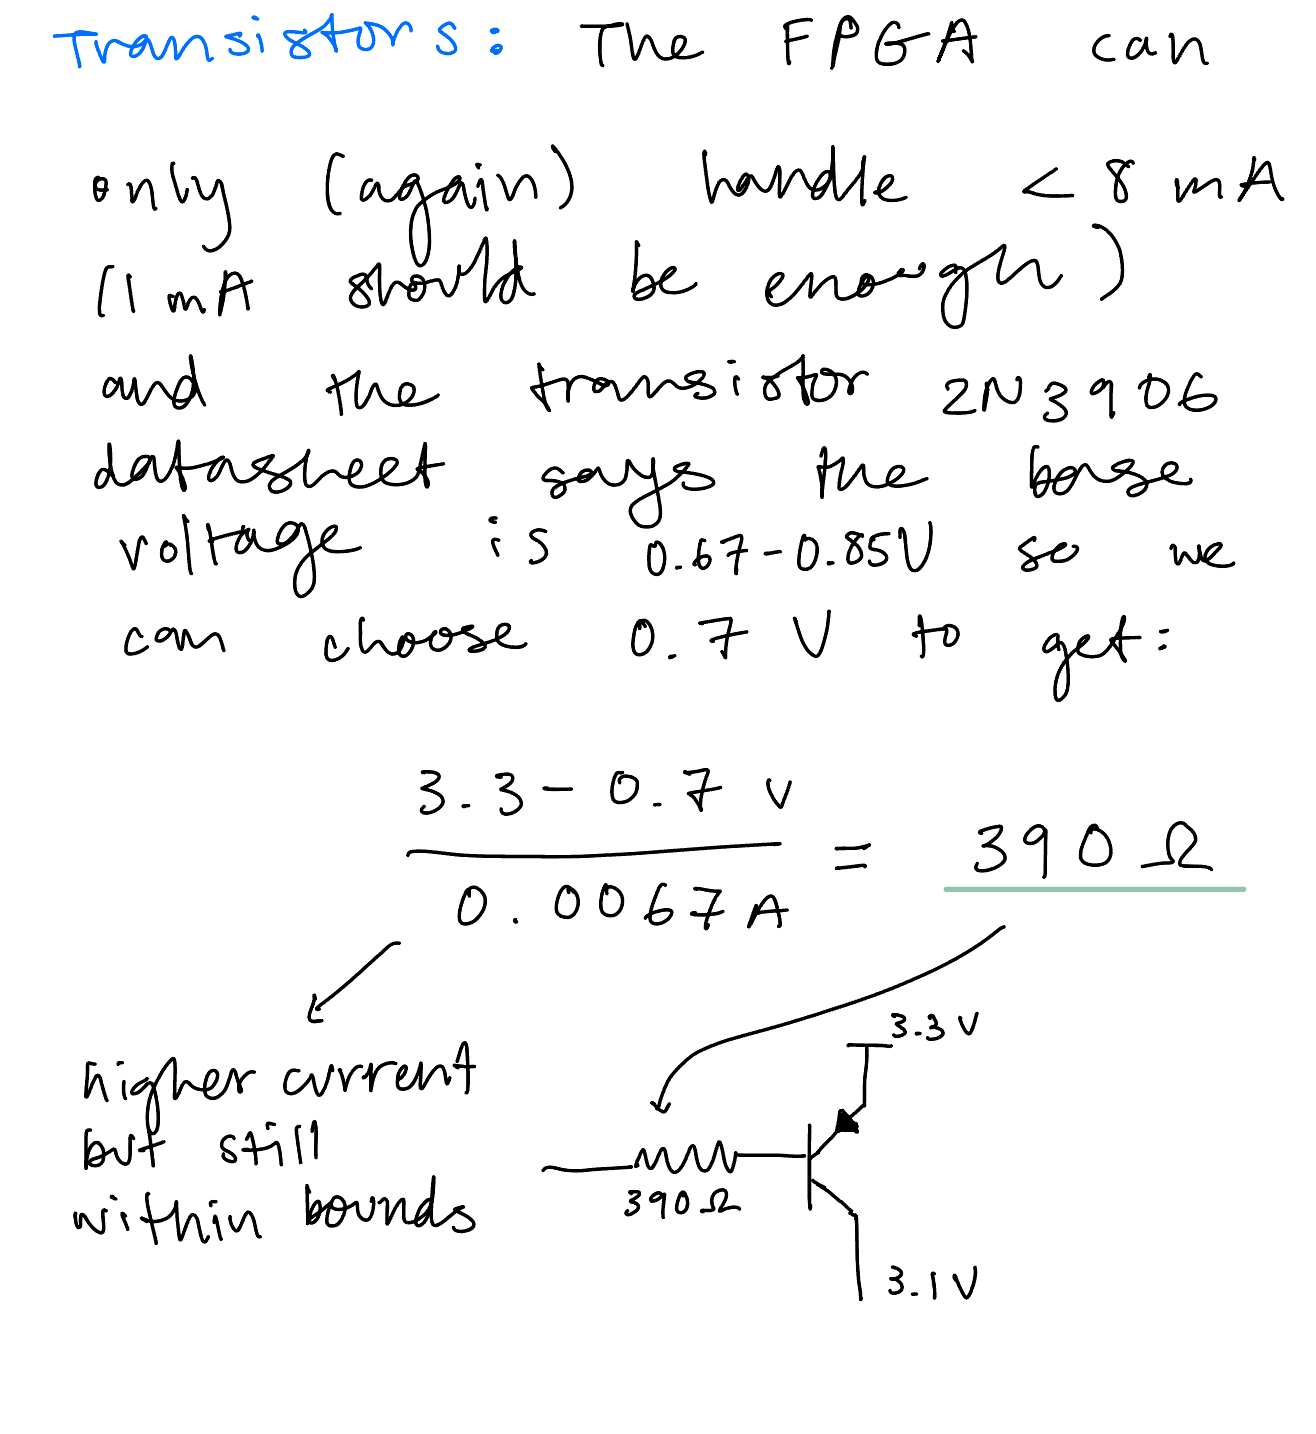 Transistors: The FPGA can
only (again) handle < 8 mA
(1 mA should be enough)
and the transistor 2N3906
datasheet says the base
voltage is 0.67-0.85V so we
can choose 0.7 V to get:
3.3 - 0.7 V
= 390 Ω
0.0067A
3.3 V
higher current
but still
within bounds
390 Ω
3.1V